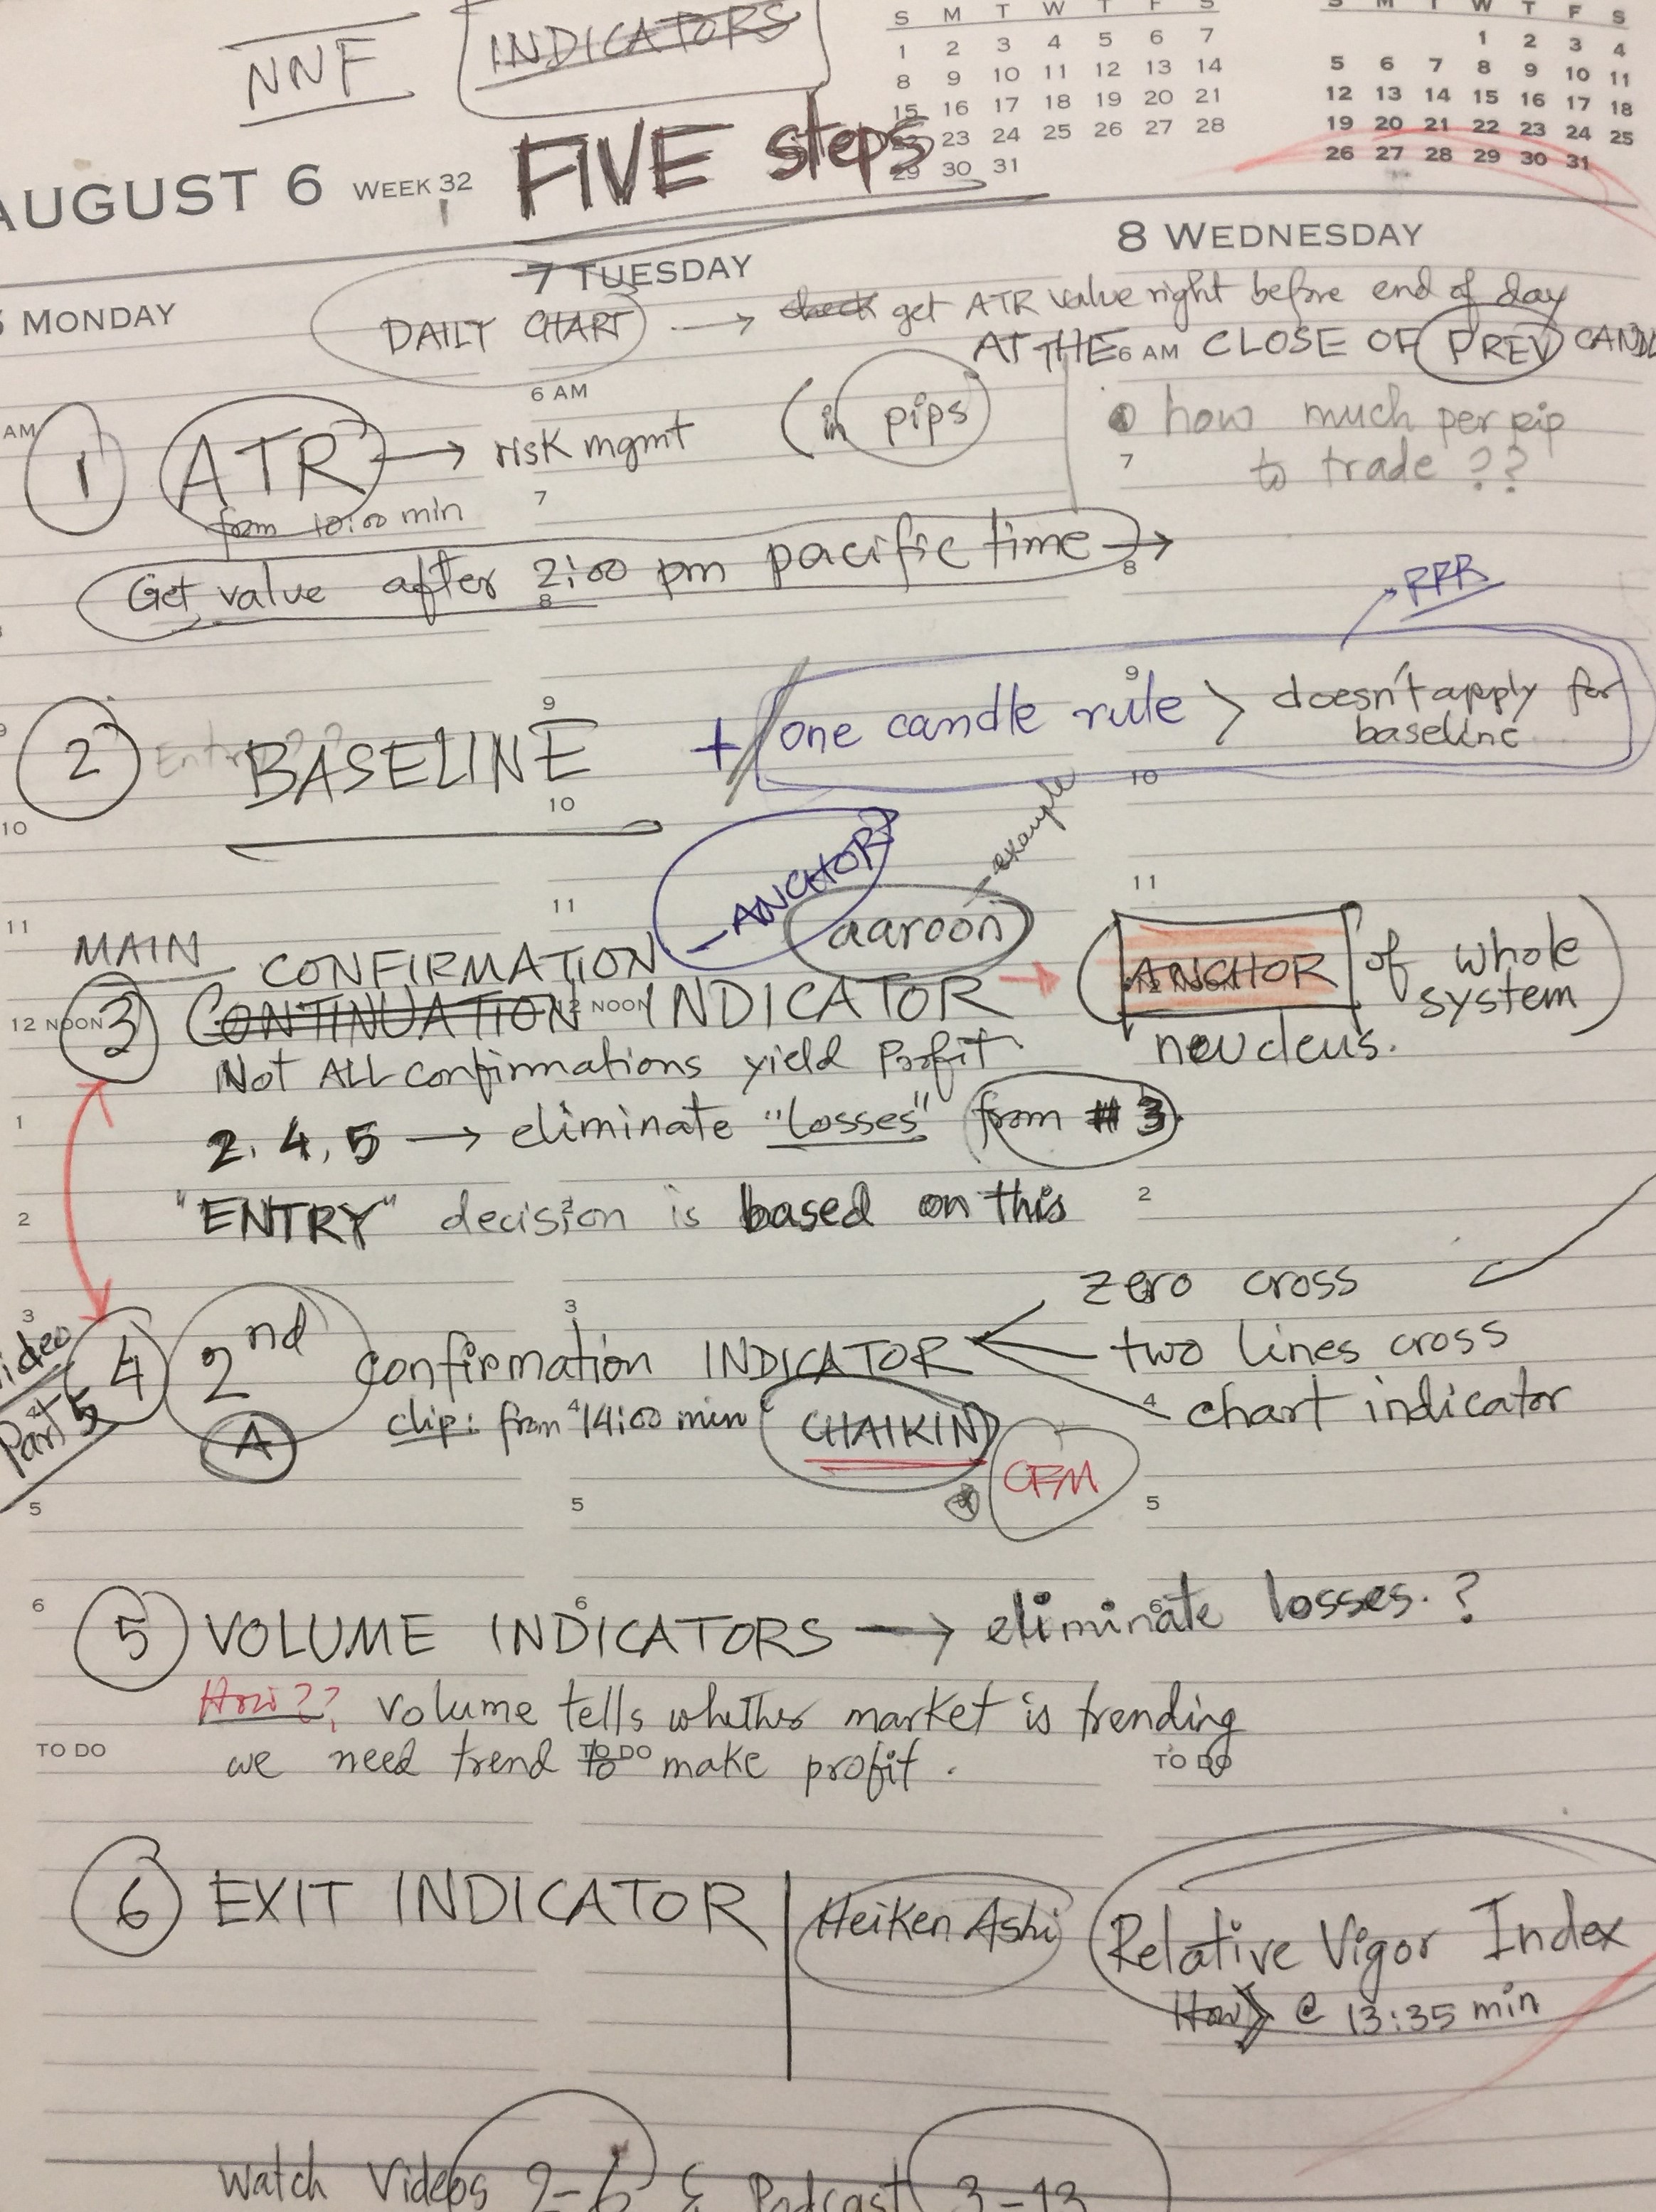 NNF INDICATORS
S M T W T F S
1 2 3 4 5 6 7
8 9 10 11 12 13 14
15 16 17 18 19 20 21
23 24 25 26 27 28
29 30 31
S M T W T F S
1 2 3 4
5 6 7 8 9 10 11
12 13 14 15 16 17 18
19 20 21 22 23 24 25
26 27 28 29 30 31
AUGUST 6 WEEK 32 FIVE steps
MONDAY
7 TUESDAY
8 WEDNESDAY
DAILY CHART → check get ATR value right before end of day
AT THE 6 AM CLOSE OF PREV CANDL
AM 6 AM
1 ATR → risk mgmt (in pips)
how much per pip
to trade ??
7 7
from 10:00 min
Get value after 2:00 pm pacific time →
8 8
RRR
9 9 9
2 Entry ?? BASELINE + one candle rule > doesn't apply for
baseline
10 10 10
ANCHOR
aaroon - example
11 11 11
MAIN CONFIRMATION
12 NOON 3 CONTINUATION 12 NOON INDICATOR → (ANCHOR of whole
system)
neucleus.
Not ALL confirmations yield Profit
1
2, 4, 5 → eliminate "losses" from # 3.
2 2 2
"ENTRY" decision is based on this
3 3
zero cross
Video Part 5
4 2nd confirmation INDICATOR two lines cross
4 4 4
chart indicator
A clip: from 14:00 min CHAIKIN
CFM
5 5 5
6 6 6
5 VOLUME INDICATORS → eliminate losses. ?
How?? volume tells whether market is trending
TO DO TO DO TO DO
we need trend to make profit.
6 EXIT INDICATOR | Heiken Ashi Relative Vigor Index
How @ 13:35 min
Watch Videos 2-6 & Podcast 3-13